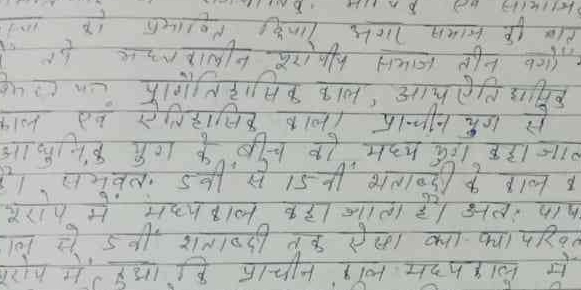 को प्रभावित किया। अगर समाज की बात
तो मध्यकालीन यूरोपीय समाज तीन वर्गों
प्रागैतिहासिक काल, आद्य ऐतिहासिक
काल एवं ऐतिहासिक काल। प्राचीन युग से
आधुनिक युग के बीच को मध्य युग कहा जाता
है। संभवतः 5वीं से 15वीं शताब्दी के काल क
यूरोप में मध्यकाल कहा जाता है। अतः
काल से 5वीं शताब्दी तक ऐसा क्या-क्या परिवर्त
यूरोप में हुआ कि प्राचीन काल मध्यकाल में